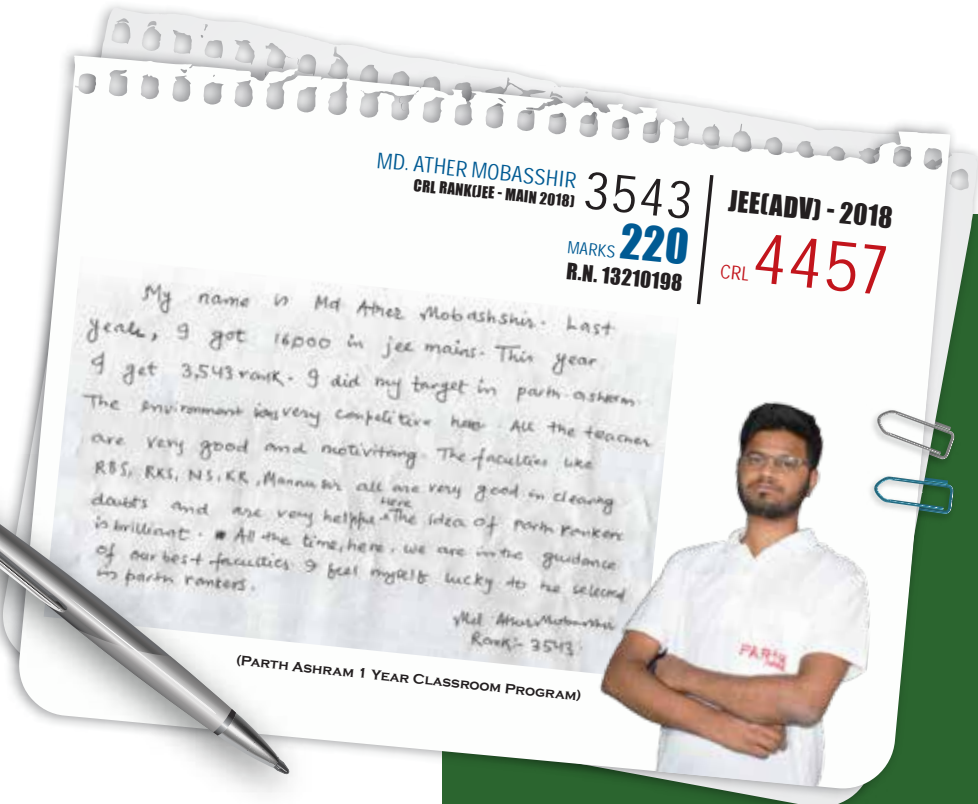 MD. ATHER MOBASSHIR
CRL RANK(JEE - MAIN 2018)
3543
MARKS 220
R.N. 13210198
JEE(ADV) - 2018
CRL 4457
My name is Md Ather Mobashshir. Last
year, I got 16000 in jee mains. This year
I get 3,543 rank. I did my target in parth ashram.
The environment is very competitive here. All the teacher
are very good and motivitang. The faculties like
RBS, RKS, NS, KR, Mannu sir all are very good in clearing
doubts and are very helpful here. The idea of parth rankers
is brilliant. All the time, here, we are in the guidance
of our best faculties I feel myself lucky to be selected
in parth rankers.
Md Ather Mobasshir
Rank:- 3543
(PARTH ASHRAM 1 YEAR CLASSROOM PROGRAM)
PARTH